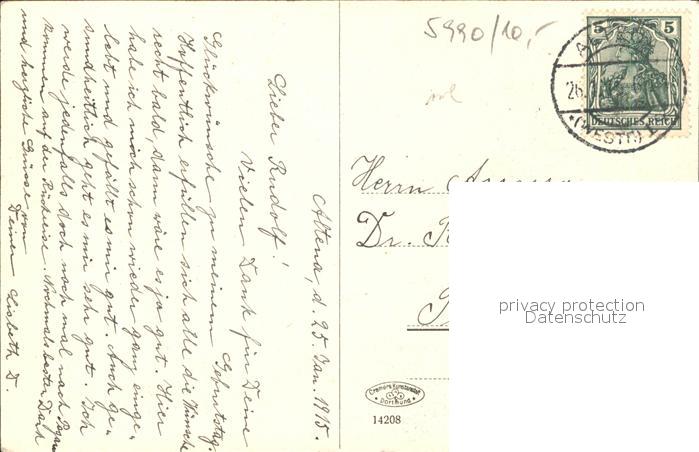 Altena, d. 25. Jan. 1915.
Lieber Rudolf!
Vielen Dank für Deine
Glückwünsche zu meinem Geburtstag.
Hoffentlich erfüllen sich alle die Wünsche
recht bald, dann wäre es ja gut. Hier
habe ich mich schon wieder ganz einge-
lebt und gefällt es mir gut. Auch ge-
sundheitlich geht es mir sehr gut. Ich
werde jedenfalls doch noch mal nach
kommen auf der Rückreise. Nochmals besten Dank
und herzliche Grüsse von
Deiner Lisbeth D.
5990/10,-
5 5
DEUTSCHES REICH
26.
(WESTF.)
Herrn
Dr.
privacy protection
Datenschutz
Cramers Kunstanstalt
Dortmund
14208